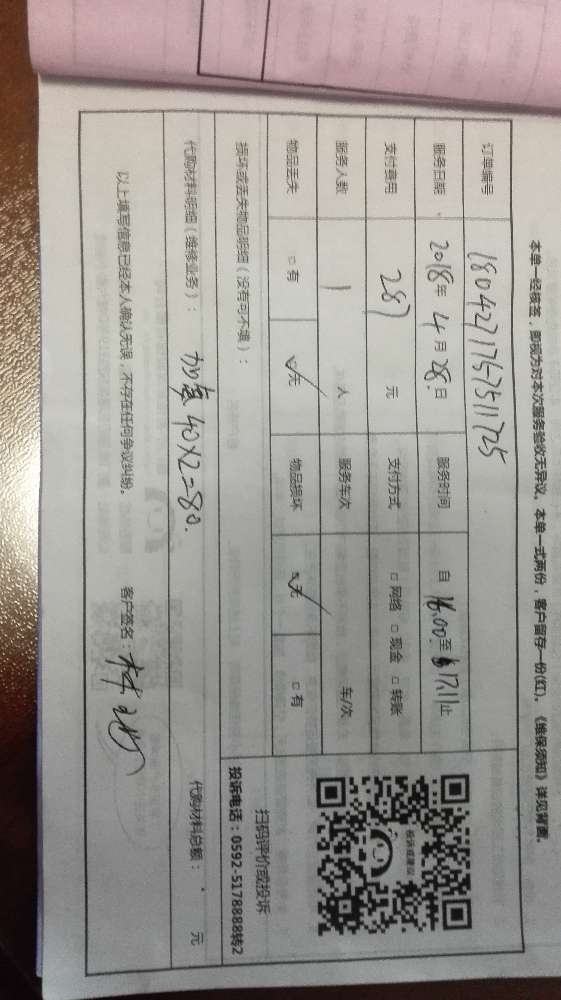 本单一经核签，即视为对本次服务验收无异议。本单一式两份，客户留存一份(红)。《维保须知》详见背面。
订单编号 180427176751725
服务日期 2018年 4月 28日 服务时间 自 16:00 至 17:11 止
支付费用 287 元 支付方式 □ 网络 □ 现金 □ 转账
服务人数 1 人 服务车次 车/次
物品丢失 □ 有 ☑ 无 物品损坏 ☑ 无 □ 有
投诉或建议
扫码评价或投诉
投诉电话：0592-5178888转2
损坏或丢失物品明细（没有可不填）：
代购材料明细（维修业务）： 加氟 40×2=80. 代购材料总额： 元
以上填写信息已经本人确认无误，不存在任何争议纠纷。 客户签名：